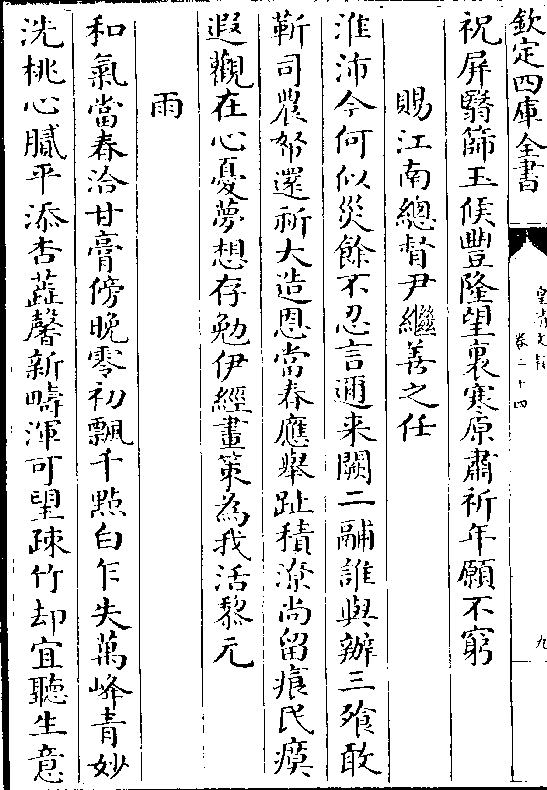 欽定四庫全書
皇清文穎
卷二十四
九
祝屏翳篩玉候豐隆望裏寒原肅祈年願不窮
賜江南總督尹繼善之任
淮沛今何似災餘不忍言邇来闕二鬴誰與辦三飱敢
靳司農帑還祈大造恩當春應舉趾積潦尚留痕民瘼
遐觀在心憂夢想存勉伊經畫策為我活黎元
雨
和氣當春洽甘膏傍晚零初飄千點白乍失萬峰青妙
洗桃心膩平添杏蕋馨新疇渾可望疎竹却宜聽生意